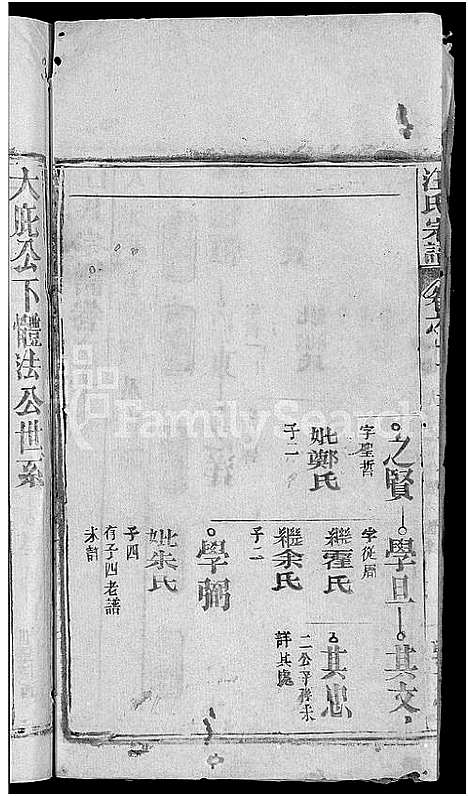 汪氏宗譜
之賢
學旦
其文
字聖哲
妣鄭氏
子一
字從周
繼霍氏
繼余氏
子二
其忠
二公辛
詳其處
學弼
妣朱氏
子四
有子四老譜
未詳
大庇公下體法公世系
FamilySearch